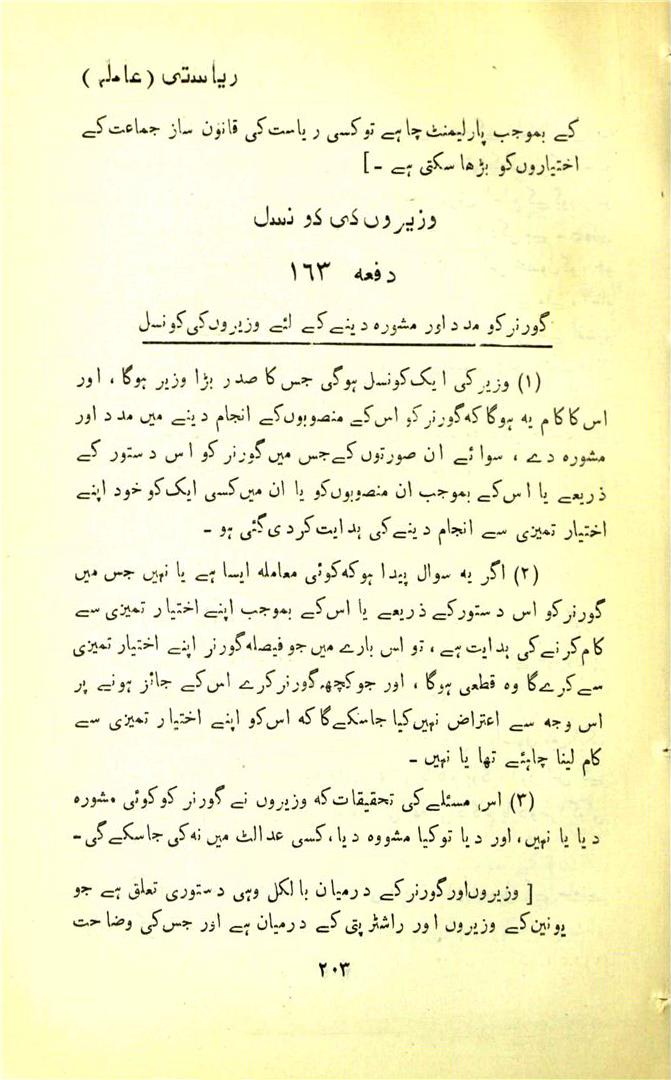 ریاستی (عاملہ)
کے بموجب پارلیمنٹ چاہے تو کسی ریاست کی قانون ساز جماعت کے
اختیاروں کو بڑھا سکتی ہے ۔]
وزیروں کی کونسل
دفعہ ۱٦۳
گورنر کو مدد اور مشورہ دینے کے لئے وزیروں کی کونسل
(۱) وزیر کی ایک کونسل ہوگی جس کا صدر بڑا وزیر ہوگا ، اور
اس کا کام یہ ہوگا کہ گورنر کو اس کے منصوبوں کے انجام دینے میں مدد اور
مشورہ دے ، سوائے ان صورتوں کے جس میں گورنر کو اس دستور کے
ذریعے یا اس کے بموجب ان منصوبوں کو یا ان میں کسی ایک کو خود اپنے
اختیار تمیزی سے انجام دینے کی ہدایت کردی گئی ہو ۔
(۲) اگر یہ سوال پیدا ہو کہ کوئی معاملہ ایسا ہے یا نہیں جس میں
گورنر کو اس دستور کے ذریعے یا اس کے بموجب اپنے اختیار تمیزی سے
کام کرنے کی ہدایت ہے ، تو اس بارے میں جو فیصلہ گورنر اپنے اختیار تمیزی
سے کرے گا وہ قطعی ہوگا ، اور جو کچھ گورنر کرے اس کے جائز ہونے پر
اس وجہ سے اعتراض نہیں کیا جاسکے گا کہ اس کو اپنے اختیار تمیزی سے
کام لینا چاہئے تھا یا نہیں ۔
(۳) اس مسئلے کی تحقیقات کہ وزیروں نے گورنر کو کوئی مشورہ
دیا یا نہیں، اور دیا تو کیا مشووہ دیا، کسی عدالٹ میں نہ کی جاسکے گی ۔
[ وزیروں اور گورنر کے درمیان بالکل وہی دستوری تعلق ہے جو
یونین کے وزیروں اور راشٹرپتی کے درمیان ہے اور جس کی وضاحت
۲۰۳